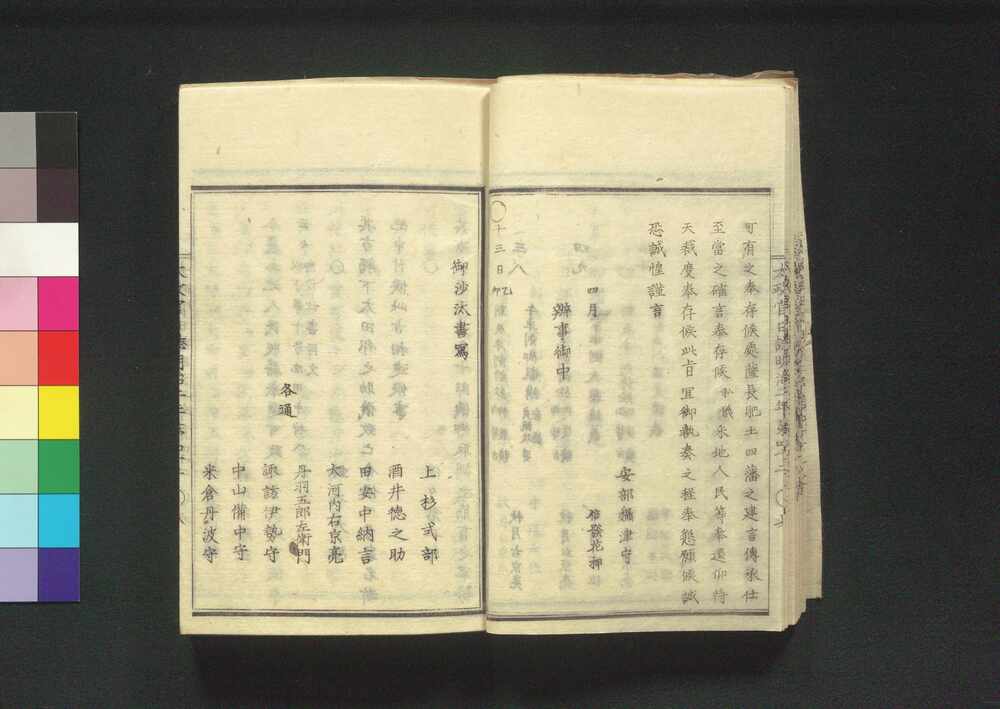 可有之奉存候處薩長肥土四藩之建言傳承仕
至當之確言奉存候私儀采地人民等奉還仰待
天裁度奉存候此旨宜御執奏之程奉懇願候誠
恐誠惶謹言
安部攝津守
信發花押
四月
辦事御中
十三日乙卯
御沙汰書寫
上杉式部
酒井德之助
田安中納言
大河内右京亮
丹羽五郎左衛門
諏訪伊勢守
中山備中守
米倉丹波守
各通